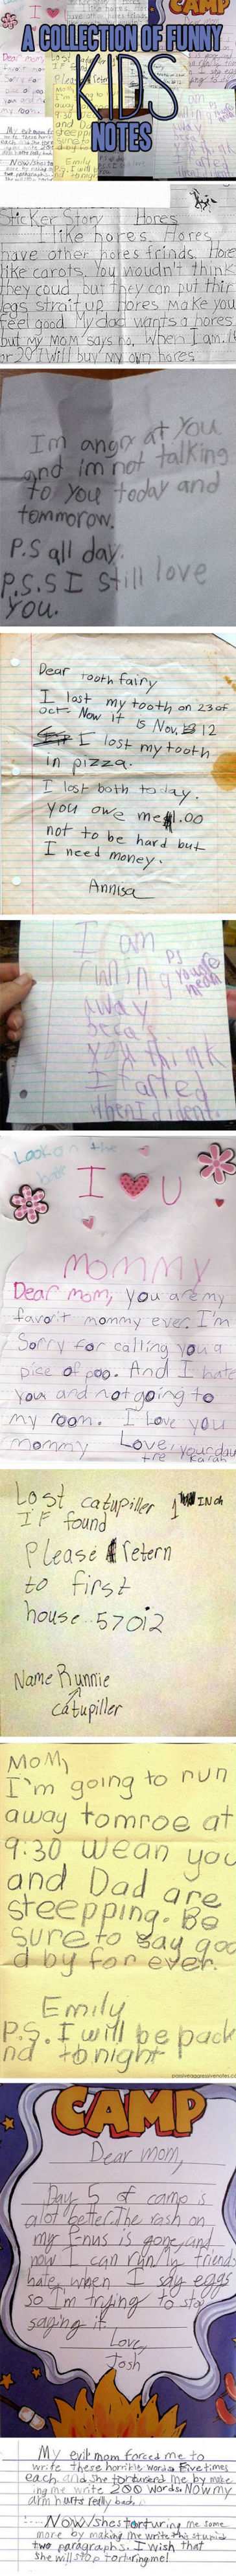 CAMP
A COLLECTION OF FUNNY
KIDS
NOTES
Sticker Story Hores
I like hores. Hores
have other hores frinds. Hores
like carots. You woudn't think
they coud but they can put thir
legs strait up. Hores make you
feel good. My dad wants a hores
but my mom says no. When I am 18
or 29 I will buy my own hores
Im angr at You
and im not talking
to You today and
tommorow.
P.S all day.
P.S.S I still love
You.
Dear tooth fairy
I lost my tooth on 23 of
oct. Now it is Nov. 12
I lost my tooth
in pizza.
I lost both today.
you owe me $1.00
not to be hard but
I need money.
Annisa
I am
runing
away
becas
you think
I farted
when I dident.
PS
your
mean
Look on the
back
I ♥ U
mommy
Dear mom, you are my
favorit mommy ever. I'm
Sorry for calling you a
pice of poo. And I hate
you and not going to
my room. I Love you
mommy Love, your dau
tre Karah
Lost catupiller 1 INch
IF found
Please retern
to first
house 57012
Name Runnie
catupiller
MoM,
I'm going to run
away tomroe at
9:30 wean you
and Dad are
sleepping. Be
sure to say goo
d by for ever.
Emily
P.S. I will be pack
nd tonight
passiveaggressivenotes.c
CAMP
Dear mom,
Day 5 of camp is
alot better. The rash on
my f-nus is gone, and
now I can run. My friends
hate when I say eggs
so I'm trying to stop
saying it.
Love,
Josh
My evil mom forced me to
write these horrible words Five times
each and she torturerd me by make
ing me write 200 words. Now my
arm hurts really bad.
Now shes torturing me some
more by making me write this stupid
two paragraphs. I wish that
she will stop torturing me!